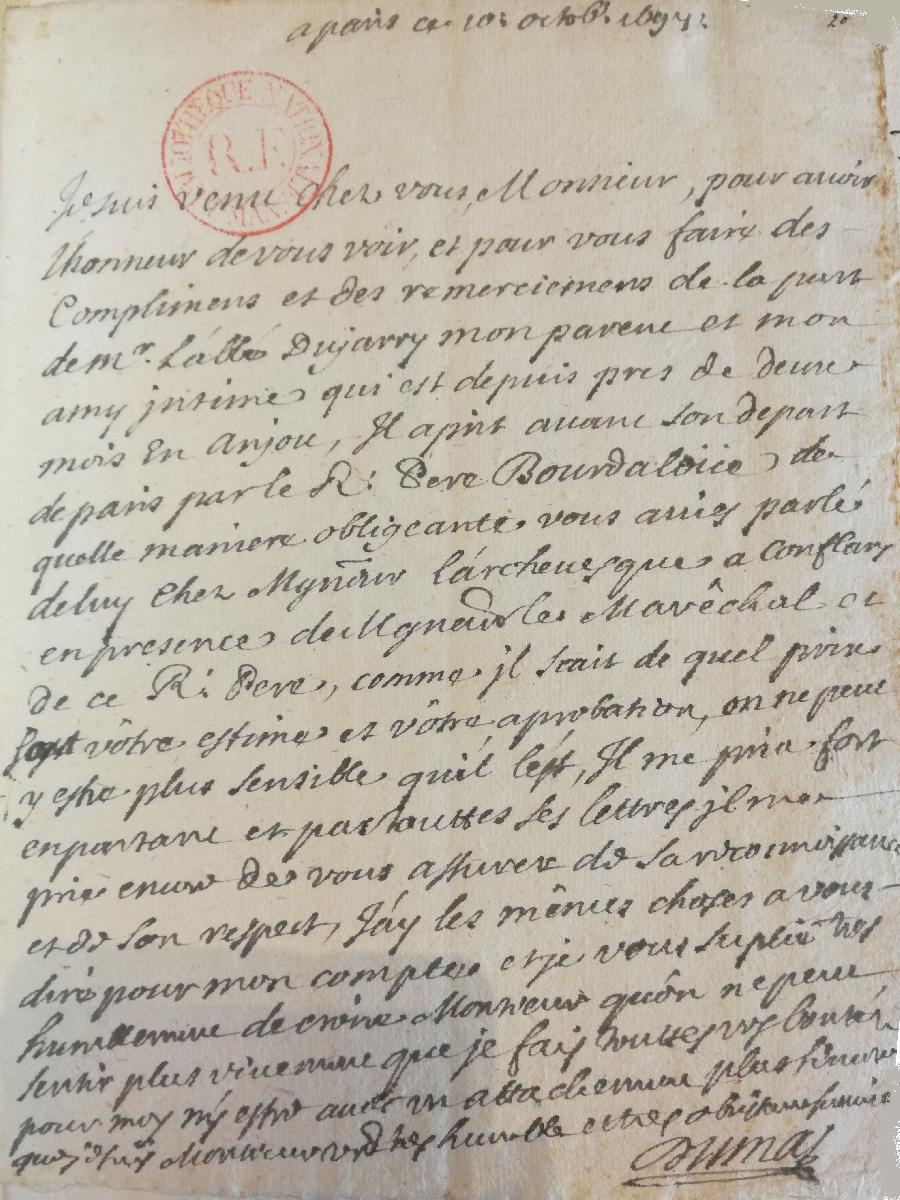 a paris ce 10: octob. 1697:
20
BIBLIOTHEQUE NATIONALE
R.F.
MAN.
Je suis venu chez vous, Monsieur, pour auoir
l'honneur de vous voir, et pour vous faire des
Complimens et des remerciemens de la part
de mr. L'abbé Dujarry mon parent et mon
amy jntime qui est depuis pres de deux
mois En Anjou, Il aprit auant son depart
de paris par le R: Pere Bourdaloüe de
quelle maniere obligeante vous auies parlé
de luy Chez Mgneur l'archeuesque a Conflans
en presence de Mgneur le Marêchal et
de ce R: Pere, comme jl scait de quel prix
sont vôtre estime et vôtre aprobation, on ne peut
y estre plus sensible qu'il l'est, Il me pria fort
en partant et par touttes ses lettres jl me
prie encore de vous assurer de sa reconnoissance
et de son respect, J'ay les mêmes choses a vous
dire pour mon compte et je vous suplie tres
humblement de croire Monsieur qu'on ne peut
sentir plus viuement que je fais touttes vos bontés
pour moy ny estre auec un attachement plus sincere
que je suis Monsieur votre tres humble et tres obeissant seruiteur
Dumas